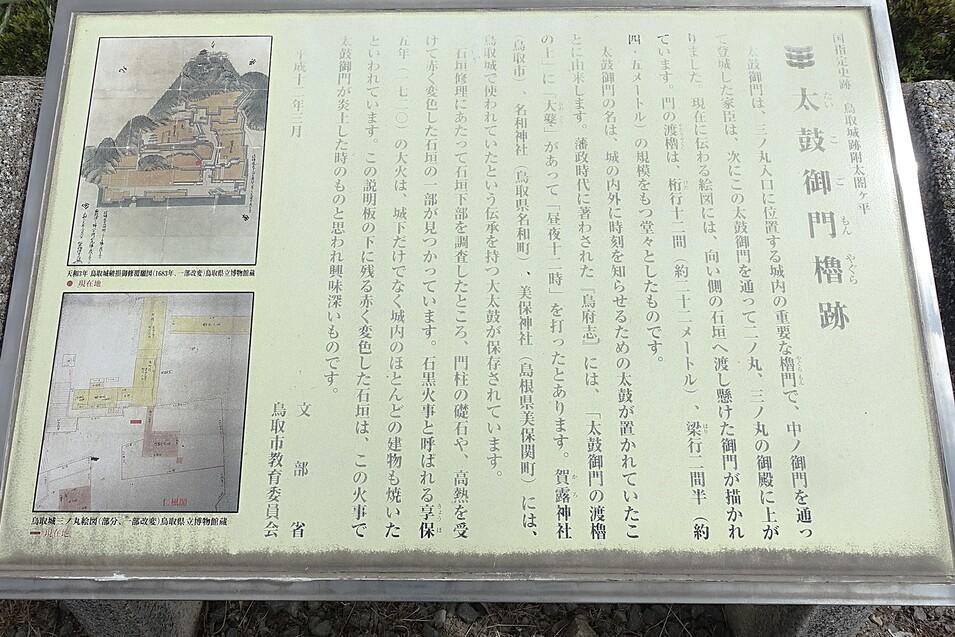 国指定史跡 鳥取城跡附太閤ヶ平
太鼓御門櫓跡
たい こ ご もん やぐら
太鼓御門は、三ノ丸入口に位置する城内の重要な櫓門で、中ノ御門を通っ
やぐらもん
て登城した家臣は、次にこの太鼓御門を通って二ノ丸、三ノ丸の御殿に上が
りました。現在に伝わる絵図には、向い側の石垣へ渡し懸けた御門が描かれ
ています。門の渡櫓は、桁行十二間(約二十二メートル)、梁行二間半(約
はり
四・五メートル)の規模をもつ堂々としたものです。
太鼓御門の名は、城の内外に時刻を知らせるための太鼓が置かれていたこ
とに由来します。藩政時代に著わされた『鳥府志』には、「太鼓御門の渡櫓
の上」に「大鼕」があって「昼夜十二時」を打ったとあります。賀露神社
かろ
(鳥取市)、名和神社(鳥取県名和町)、美保神社(島根県美保関町)には、
鳥取城で使われていたという伝承を持つ大太鼓が保存されています。
石垣修理にあたって石垣下部を調査したところ、門柱の礎石や、高熱を受
けて赤く変色した石垣の一部が見つかっています。石黒火事と呼ばれる享保
きょうほ
五年(一七二〇)の大火は、城下だけでなく城内のほとんどの建物も焼いた
といわれています。この説明板の下に残る赤く変色した石垣は、この火事で
太鼓御門が炎上した時のものと思われ興味深いものです。
平成十二年三月
文部省
鳥取市教育委員会
天和3年 鳥取城破損御修覆願図(1683年、一部改変)鳥取県立博物館蔵
● 現在地
仁風閣
鳥取城三ノ丸絵図(部分、一部改変)鳥取県立博物館蔵
現在地